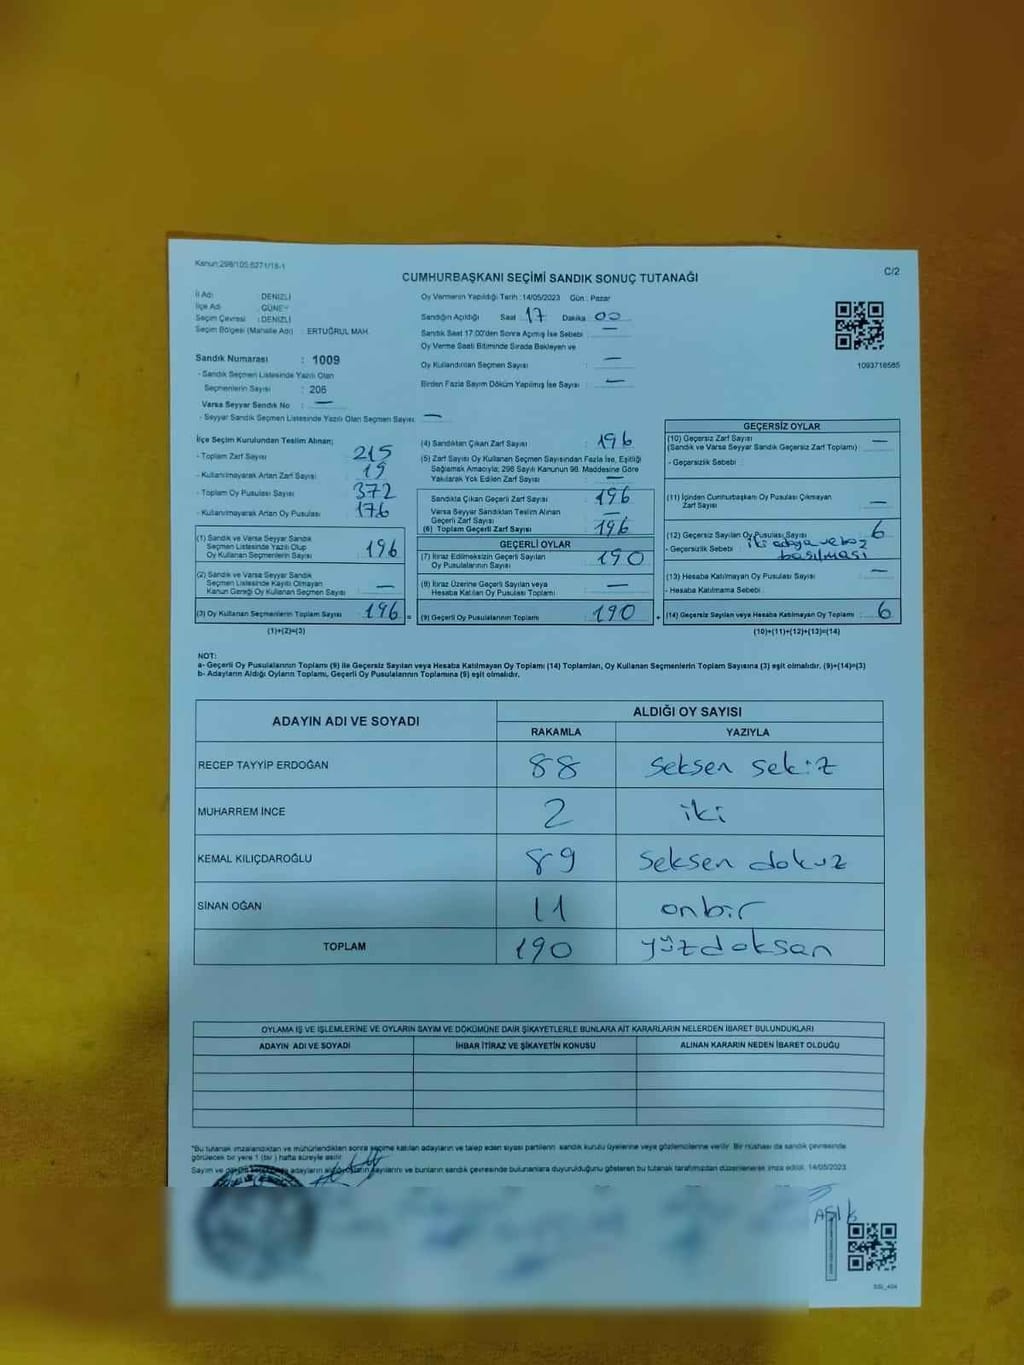 Kanun:298/105,6271/16-1
C/2
CUMHURBAŞKANI SEÇİMİ SANDIK SONUÇ TUTANAĞI
İl Adı : DENİZLİ
İlçe Adı : GÜNEY
Seçim Çevresi : DENİZLİ
Seçim Bölgesi (Mahalle Adı) : ERTUĞRUL MAH.
Sandık Numarası : 1009
- Sandık Seçmen Listesinde Yazılı Olan
Seçmenlerin Sayısı : 206
Varsa Seyyar Sandık No : —
- Seyyar Sandık Seçmen Listesinde Yazılı Olan Seçmen Sayısı : —
Oy Vermenin Yapıldığı Tarih : 14/05/2023 Gün : Pazar
Sandığın Açıldığı Saat 17 Dakika 00
Sandık Saat 17:00'den Sonra Açmış İse Sebebi : —
Oy Verme Saati Bitiminde Sırada Bekleyen ve
Oy Kullandırılan Seçmen Sayısı : —
Birden Fazla Sayım Döküm Yapılmış İse Sayısı : —
1093716585
İlçe Seçim Kurulundan Teslim Alınan;
- Toplam Zarf Sayısı : 215
- Kullanılmayarak Artan Zarf Sayısı : 19
- Toplam Oy Pusulası Sayısı : 372
- Kullanılmayarak Artan Oy Pusulası : 176
(1) Sandık ve Varsa Seyyar Sandık
Seçmen Listesinde Yazılı Olup
Oy Kullanan Seçmenlerin Sayısı : 196
(2) Sandık ve Varsa Seyyar Sandık
Seçmen Listesinde Kayıtlı Olmayan
Kanun Gereği Oy Kullanan Seçmen Sayısı : —
(3) Oy Kullanan Seçmenlerin Toplam Sayısı : 196 =
(1)+(2)=(3)
(4) Sandıktan Çıkan Zarf Sayısı : 196
(5) Zarf Sayısı Oy Kullanan Seçmen Sayısından Fazla İse, Eşitliği
Sağlamak Amacıyla; 298 Sayılı Kanunun 98. Maddesine Göre
Yakılarak Yok Edilen Zarf Sayısı : —
Sandıkta Çıkan Geçerli Zarf Sayısı : 196
Varsa Seyyar Sandıktan Teslim Alınan
Geçerli Zarf Sayısı : —
(6) Toplam Geçerli Zarf Sayısı : 196
GEÇERLİ OYLAR
(7) İtiraz Edilmeksizin Geçerli Sayılan
Oy Pusulasının Sayısı : 190
(8) İtiraz Üzerine Geçerli Sayılan veya
Hesaba Katılan Oy Pusulası Toplamı : —
(9) Geçerli Oy Pusulalarının Toplamı : 190 +
GEÇERSİZ OYLAR
(10) Geçersiz Zarf Sayısı : —
(Sandık ve Varsa Seyyar Sandık Geçersiz Zarf Toplamı)
- Geçersizlik Sebebi :
(11) İçinden Cumhurbaşkanı Oy Pusulası Çıkmayan
Zarf Sayısı : —
(12) Geçersiz Sayılan Oy Pusulası Sayısı : 6
- Geçersizlik Sebebi : iki adaya ve boz
basılması
(13) Hesaba Katılmayan Oy Pusulası Sayısı : —
- Hesaba Katılmama Sebebi :
(14) Geçersiz Sayılan veya Hesaba Katılmayan Oy Toplamı : 6
(10)+(11)+(12)+(13)=(14)
NOT:
a- Geçerli Oy Pusulalarının Toplamı (9) ile Geçersiz Sayılan veya Hesaba Katılmayan Oy Toplamı (14) Toplamları, Oy Kullanan Seçmenlerin Toplam Sayısına (3) eşit olmalıdır. (9)+(14)=(3)
b- Adayların Aldığı Oyların Toplamı, Geçerli Oy Pusulalarının Toplamına (9) eşit olmalıdır.
ADAYIN ADI VE SOYADI
ALDIĞI OY SAYISI
RAKAMLA YAZIYLA
RECEP TAYYİP ERDOĞAN 88 seksen sekiz
MUHARREM İNCE 2 iki
KEMAL KILIÇDAROĞLU 89 seksen dokuz
SİNAN OĞAN 11 onbir
TOPLAM 190 yüzdoksan
OYLAMA İŞ VE İŞLEMLERİNE VE OYLARIN SAYIM VE DÖKÜMÜNE DAİR ŞİKAYETLERLE BUNLARA AİT KARARLARIN NELERDEN İBARET BULUNDUKLARI
ADAYIN ADI VE SOYADI İHBAR İTİRAZ VE ŞİKAYETİN KONUSU ALINAN KARARIN NEDEN İBARET OLDUĞU
*Bu tutanak imzalandıktan ve mühürlendikten sonra seçime katılan adayların ve talep eden siyasi partilerin sandık kurulu üyelerine veya gözlemcilerine verilir. Bir nüshası da sandık çevresinde
görülecek bir yere 1 (bir) hafta süreyle asılır.
Sayım ve adayların aldığı oyların sayılarını ve bunların sandık çevresinde bulunanlara duyurulduğunu gösteren bu tutanak tarafımızdan düzenlenerek imza edildi. 14/05/2023